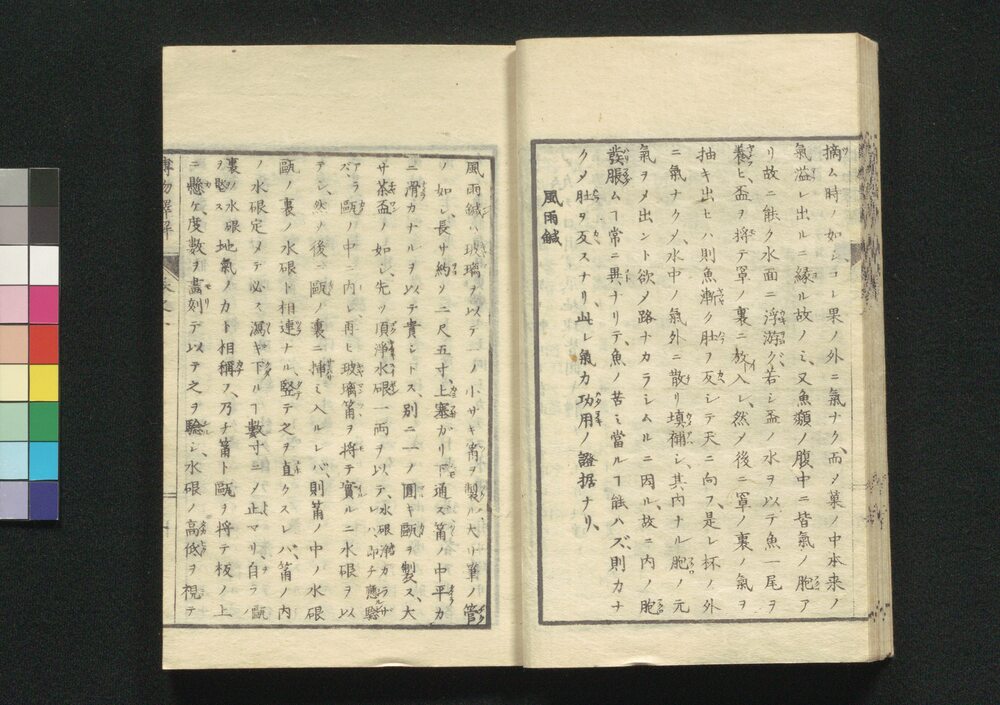 摘ム時ノ如シコレ果ノ外ニ氣ナク而メ菓ノ中本来ノ
氣溢レ出ルニ縁ル故ノミ又魚類ノ腹中ニ皆氣ノ胞ア
リ故ニ能ク水面ニ浮游グ若シ盃ノ水ヲ以テ魚一尾ヲ
養ヒ盃ヲ将テ罩ノ裏ニ放入レ然メ後ニ罩ノ裏ノ氣ヲ
抽キ出セハ則魚漸ク肚ヲ反シテ天ニ向フ是レ杯ノ外
ニ氣ナクメ水中ノ氣外ニ散リ填補シ其内ナル胞ノ元
氣ヲメ出ント欲メ路ナカラシムルニ因ル故ニ内ノ胞
發脹ムヿ常ニ異ナリテ魚ノ苦ミ當ルヿ能ハズ則カナ
クメ肚ヲ反スナリ此レ氣力功用ノ證据ナリ
風雨鍼
風雨鍼ハ玻璃ヲ以テ一ノ小サキ筩ヲ製ル大サ筆ノ管
ノ如シ長サ約ソ二尺五寸上塞ガリ下通ス筩ノ中平カ
ニ滑カナルヲ以テ貴シトス別ニ一ノ圓キ甌ヲ製ス大
サ茶盃ノ如シ先ツ頂浄水銀一両ヲ以テ水銀浄カラサレハ即チ應驗
アラズ甌ノ中ニ内レ再ヒ玻璃筩ヲ将テ實ルニ水銀ヲ以
テシ然ノ後ニ甌ノ裏ニ挿ミ入ルレバ則筩ノ中ノ水銀
甌ノ裏ノ水銀ト相連ナル竪テ之ヲ直クスレバ筩ノ内
ノ水銀定メテ必ス瀉キ下ルヿ數寸ニメ止マリ自ラ甌
裏ノ水銀地氣ノカト相稱フ乃チ筩ト甌ヲ将テ板ノ上
ニ懸ケ度數ヲ畵刻テ以テ之ヲ驗シ水銀ノ高低ヲ視テ